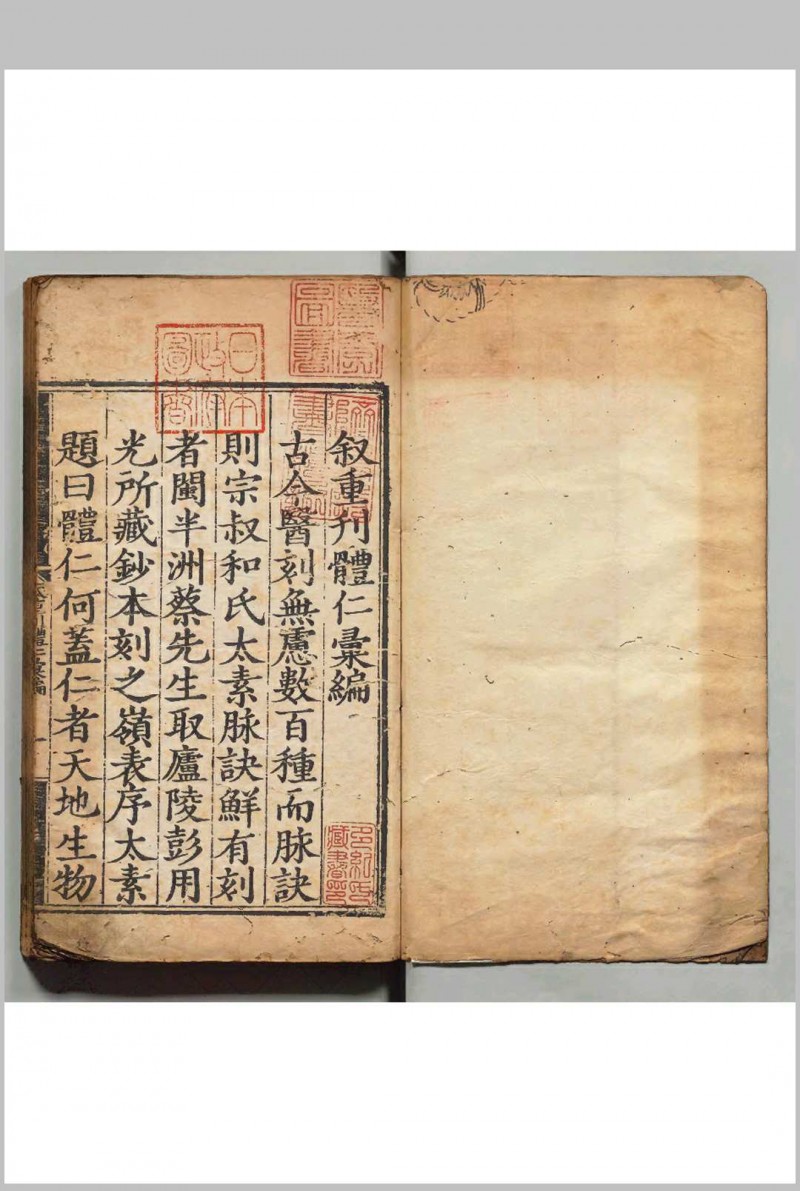 叙重刊體仁彙編
古今醫刻無慮數百種而脉訣
則宗叔和氏太素脉訣鮮有刻
者閩半洲蔡先生取廬陵彭用
光所藏鈔本刻之嶺表序太素
題曰體仁何蓋仁者天地生物
日本
政府
圖書
藏書